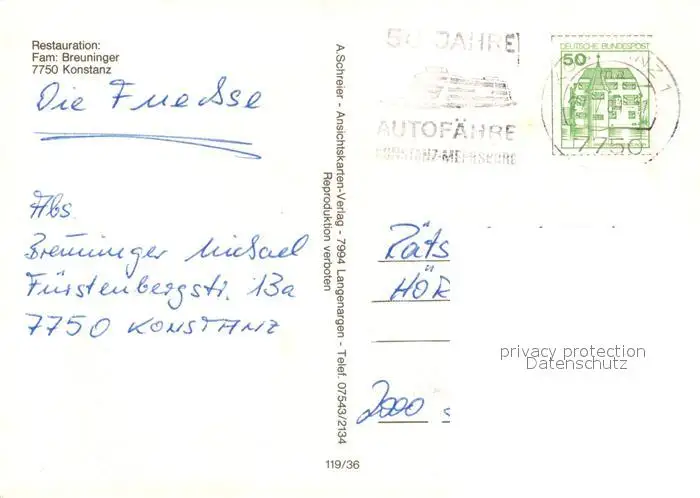 Restauration:
Fam: Breuninger
7750 Konstanz
Die Fuechse
Abs
Breuninger Michael
Fürstenbergstr. 13a
7750 KONSTANZ
A.Schreier - Ansichtskarten-Verlag - 7994 Langenargen - Telef. 07543/2134
Reproduktion verboten
119/36
50 JAHRE
AUTOFÄHRE
KONSTANZ-MEERSBURG
DEUTSCHE BUNDESPOST
50
7750
Räts
HÖR
2000
privacy protection
Datenschutz